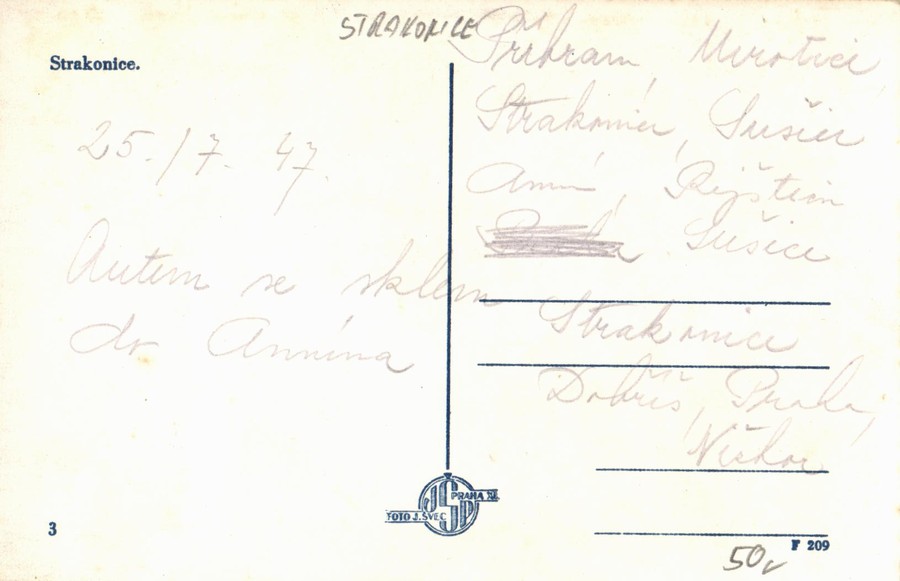 STRAKONICE
Strakonice.
25./7. 47.
Autem se sklem
do Annína
Příbram, Mirotice,
Strakonice, Sušice
Annín, Rejštein
Sušice
Strakonice
Dobříš, Praha,
JSP
PRAHA
FOTO J. ŠVEC
3
F 209
50,